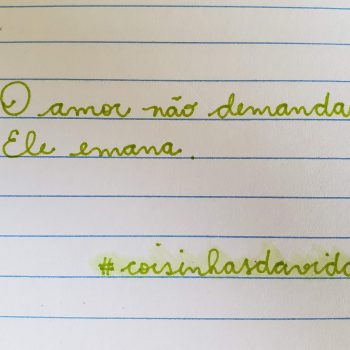 O amor não demanda
Ele emana.
#coisinhasdavida